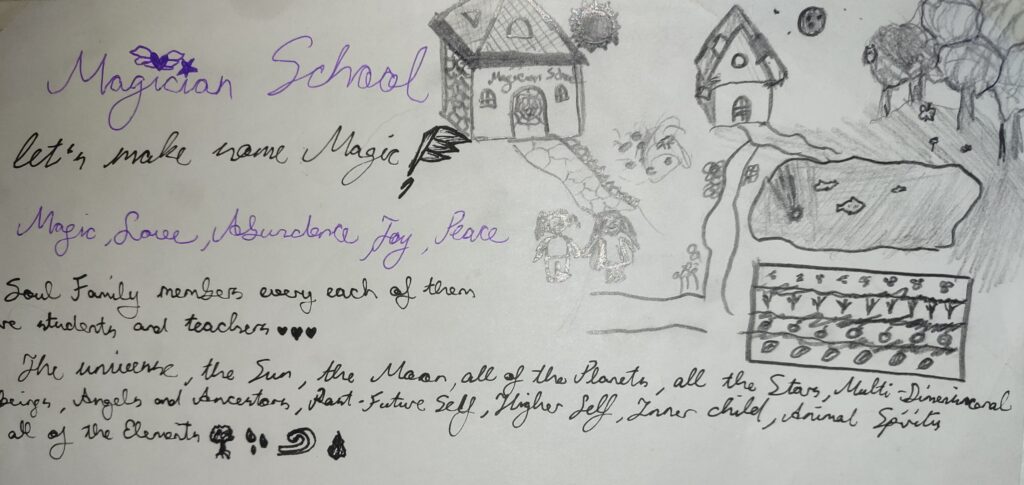 Magician School
Magician School
let's make some Magic
Magic, Love, Abundance, Joy, Peace
Soul Family members every each of them
students and teachers ♥♥♥
The universe, the Sun, the Moon, all of the Planets, all the Stars, Multi-Dimensional
Beings, Angels and Ancestors, Past-Future Self, Higher Self, Inner child, Animal Spirits
all of the Elements